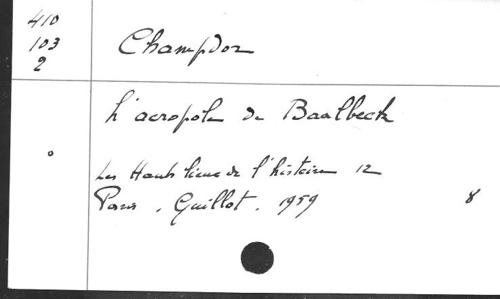 410
103
2
Champdor
L'acropole de Baalbeck
Les Hauts lieux de l'histoire 12
Paris, Guillot, 1959
8